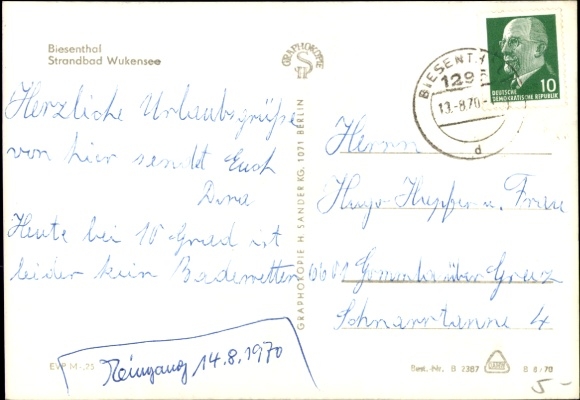 Biesenthal
Strandbad Wukensee
Herzliche Urlaubsgrüße
von hier sendet Euch
Heute bei 15 Grad ist
leider kein Badewetter
EVP M -,25
14.8.1970
GRAPHOKOPIE
GRAPHOKOPIE H. SANDER KG, 1071 BERLIN
BIESENTHAL
129
13.-8.70.-
d
10
DEUTSCHE
DEMOKRATISCHE REPUBLIK
Herrn
Hugo u. Frau
über Greiz
Schnarrtanne 4
Best.-Nr. B 2387
B 8/70
5-